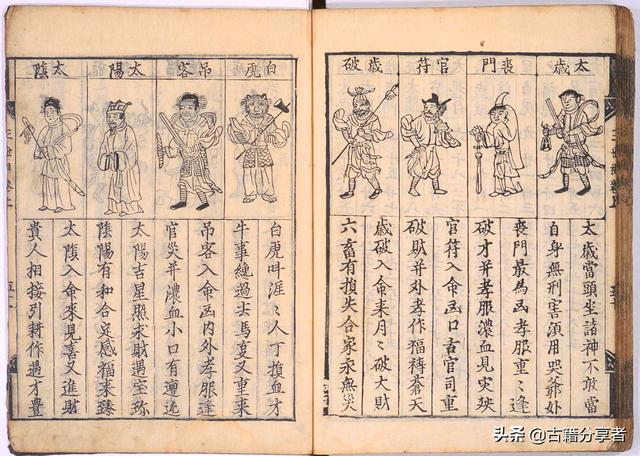 太歲
喪門
官符
歲破
太歲當頭坐諸神不敢當
自身無刑害須用哭爺
喪門最為凶孝服重〻逢
破才并孝服濃血見灾殃
官符入命凶口舌官司重
破財并外孝作福禱蒼天
歲破入命來月〻破大財
六畜有損失合家永無災
白虎
吊客
太陽
太陰
白虎呌涯〻人丁損血才
牛事纏過去馬夏又重來
吊客入命凶內外孝服逢
官災并濃血小口有邅
太陽吉星照求財遇宝珎
陰陽有和合定感福來臻
太陰入命來見喜又進財
貴人相接引耕作過才豊
头条 @古籍分享者